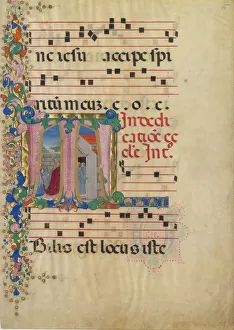 nc iesu accipe spi
ritum meuz. e. o. e.
In dedi
catiōe ec
cl'e Int.
T
Bilis est locus iste